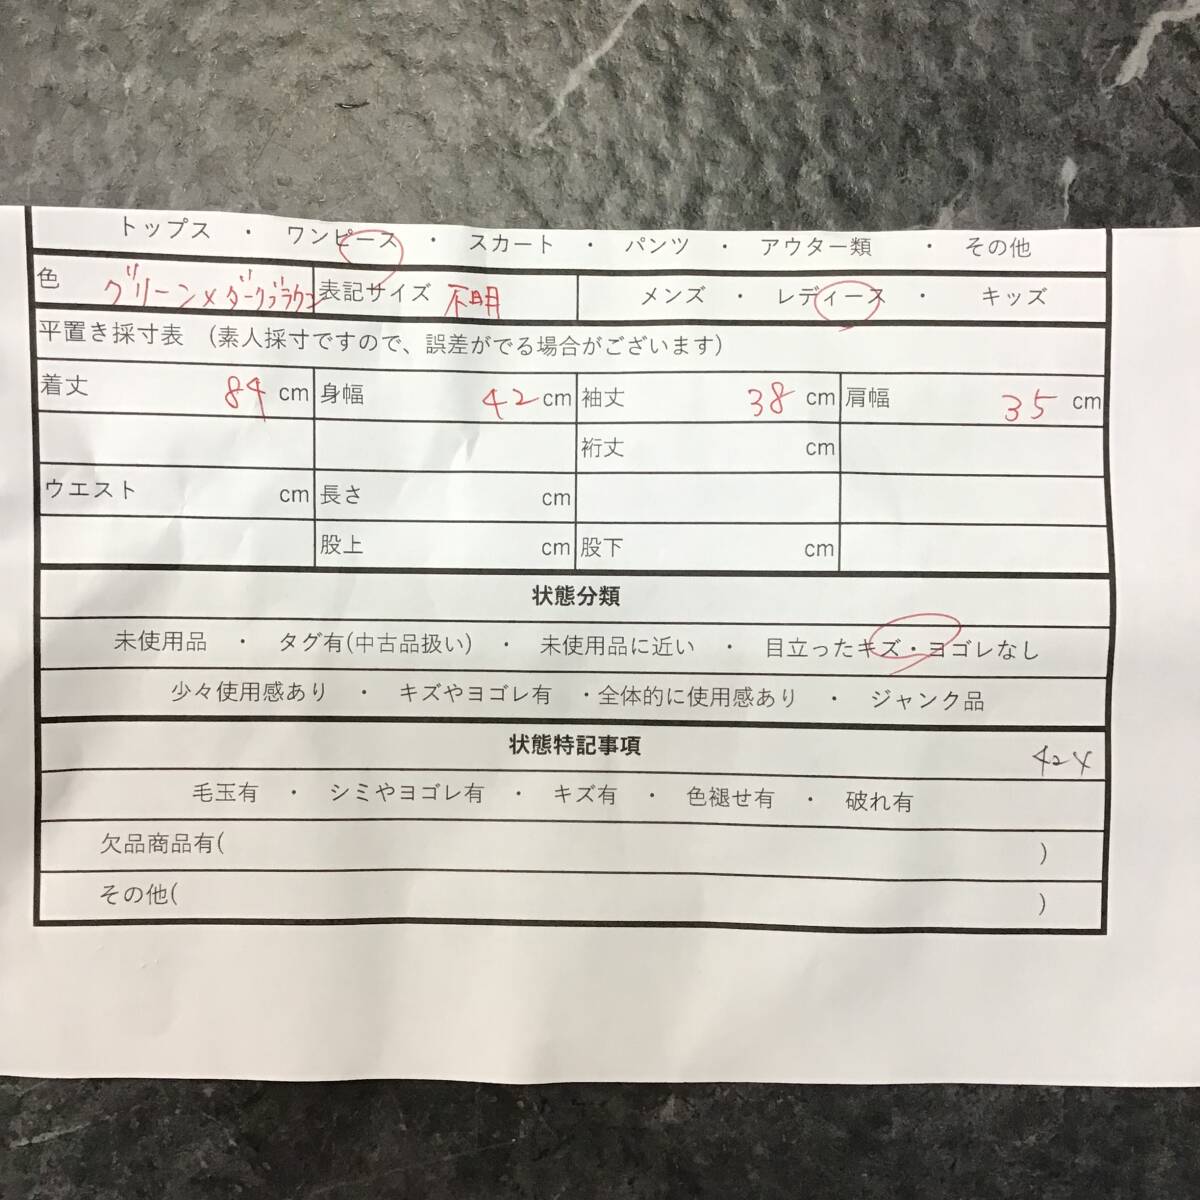 トップス ・ ワンピース ・ スカート ・ パンツ ・ アウター類 ・ その他
色 グリーン×ダークブラウン 表記サイズ 不明 メンズ ・ レディース ・ キッズ
平置き採寸表 (素人採寸ですので、誤差がでる場合がございます)
着丈 84 cm 身幅 42 cm 袖丈 38 cm 肩幅 35 cm
裄丈 cm
ウエスト cm 長さ cm
股上 cm 股下 cm
状態分類
未使用品 ・ タグ有(中古品扱い) ・ 未使用品に近い ・ 目立ったキズ・ヨゴレなし
少々使用感あり ・ キズやヨゴレ有 ・全体的に使用感あり ・ ジャンク品
状態特記事項
毛玉有 ・ シミやヨゴレ有 ・ キズ有 ・ 色褪せ有 ・ 破れ有
欠品商品有( )
その他( )